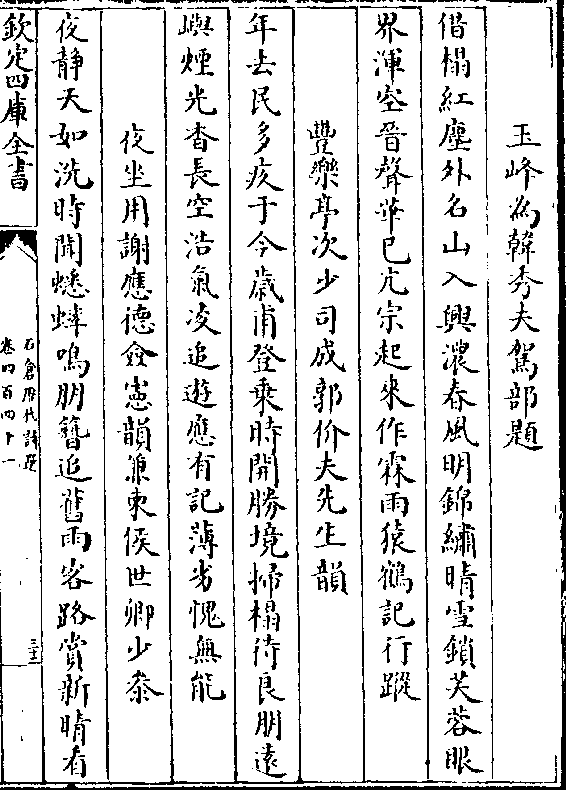 玉峰為韓秀夫駕部題
借榻紅塵外名山入興濃春風明錦繡晴雪鎖芙蓉眼
界渾空晉聲華已亢宗起來作霖雨猿鶴記行蹤
豐樂亭次少司成郭价夫先生韻
年去民多疾于今歲甫登乘時開勝境掃榻待良朋遠
嶼煙光杳長空浩氣凌追遊應有記薄劣愧無能
夜坐用謝應德僉憲韻兼柬侯世卿少叅
夜静天如洗時聞蟋蟀鳴朋簪追舊雨客路賞新晴看
欽定四庫全書
石倉歷代詩選
卷四百四十一
三十三